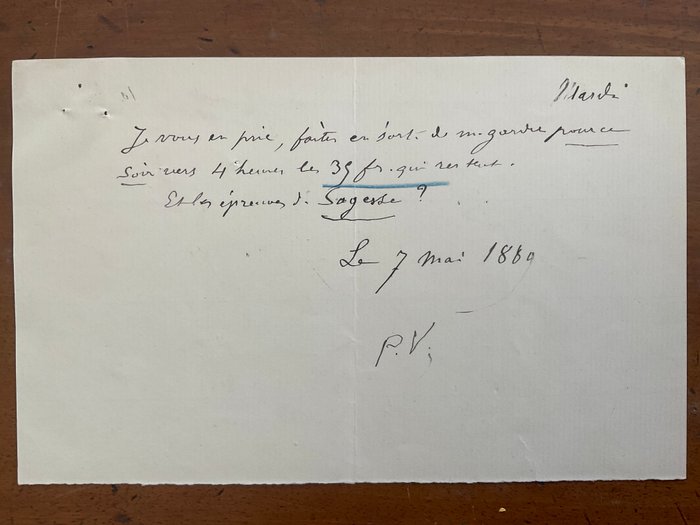 Mardi
Je vous en prie, faites en sorte de me garder pour ce
Soir vers 4 heures les 39 fr. qui restent.
Et les épreuves de Sagesse ?
Le 7 mai 1889
P. V.